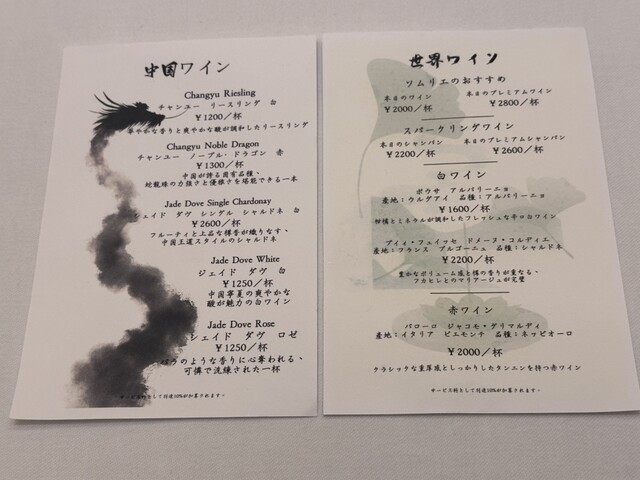 中国ワイン
Changyu Riesling
チャンユー リースリング 白
￥1200／杯
華やかな香りと爽やかな酸が調和したリースリング
Changyu Noble Dragon
チャンユー ノーブル・ドラゴン 赤
￥1300／杯
中国が誇る固有品種、
蛇龍珠の力強さと優雅さを堪能できる一本
Jade Dove Single Chardonay
ジェイド ダヴ シングル シャルドネ 白
￥2600／杯
フルーティと上品な樽香が織りなす、
中国王道スタイルのシャルドネ
Jade Dove White
ジェイド ダヴ 白
￥1250／杯
中国寧夏の爽やかな
酸が魅力の白ワイン
Jade Dove Rose
ジェイド ダヴ ロゼ
￥1250／杯
のような香りに心奪われる、
可憐で洗練された一杯
サービス料として別途10%が加算されます。
世界ワイン
ソムリエのおすすめ
本日のワイン 本日のプレミアムワイン
￥2000／杯 ￥2800／杯
スパークリングワイン
本日のシャンパン 本日のプレミアムシャンパン
￥2200／杯 ￥2600／杯
白ワイン
ボウサ アルバリーニョ
産地：ウルグアイ 品種：アルバリーニョ
￥1600／杯
柑橘とミネラルが調和したフレッシュな辛口白ワイン
プイィ・フュイッセ ドメーヌ・コルディエ
産地：フランス ブルゴーニュ 品種：シャルドネ
￥2200／杯
豊かなボリューム感と樽の香りが重なる、
フカヒレとのマリアージュが完璧
赤ワイン
バローロ ジャコモ・グリマルディ
産地：イタリア ピエモンテ 品種：ネッビオーロ
￥2000／杯
クラシックな重厚感としっかりしたタンニンを持つ赤ワイン
サービス料として別途10%が加算されます。